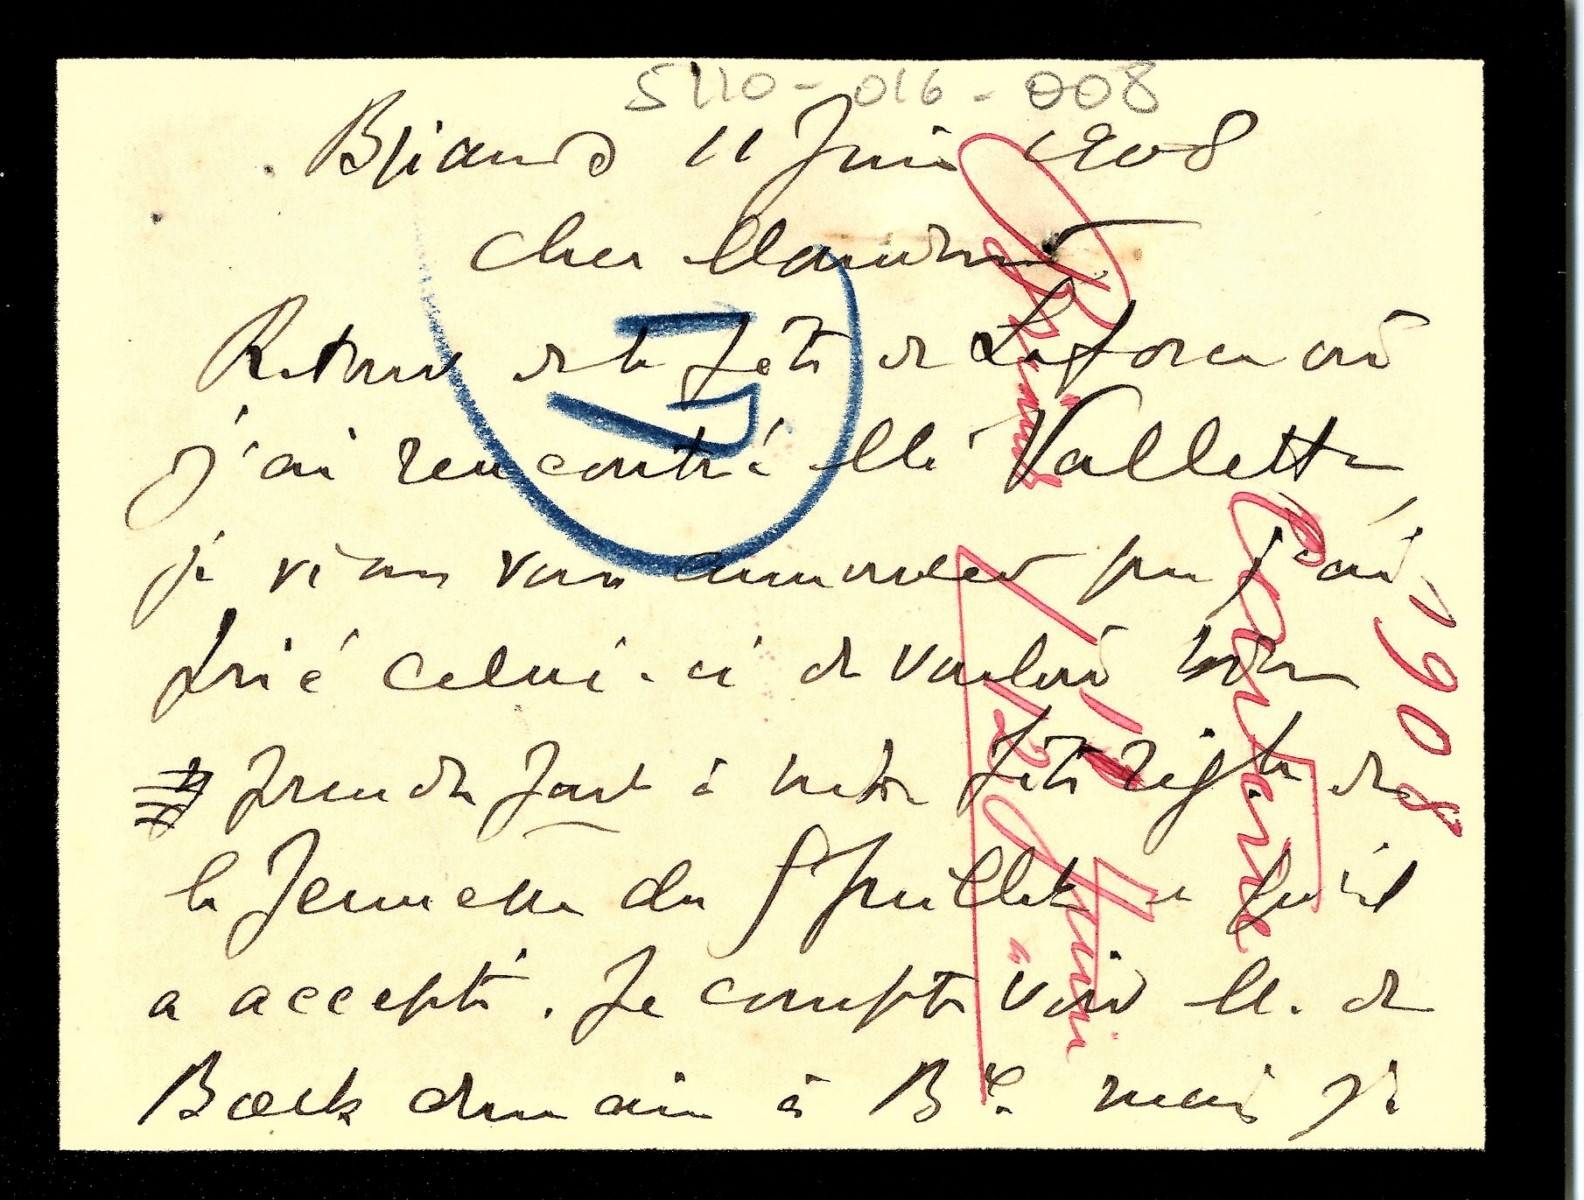 S110-016-008
Briand 11 Juin 1908
Cher Monsieur
Retour de la fête de Laforce où
j'ai rencontré Mr Vallette,
je viens vous annoncer que j'ai
prié celui-ci de vouloir bien
prendre part à notre fête régle de
la Jeunesse du 5 Juillet et qu'il
a accepté. Je compte voir M. de
Boeck demain à Bc. mais je
Réponse
12 Juin
carte
1908